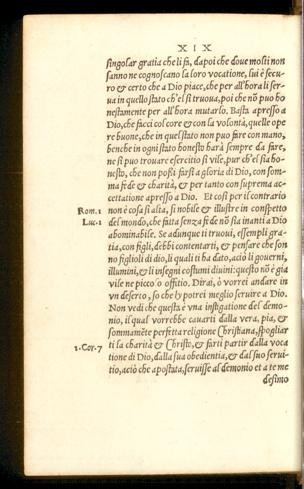 XIX
singolar gratia che li fa, dapoi che doue molti non
sanno ne cognoscano la loro vocatione, lui è secu-
ro & certo che a Dio piace, che per all'hora li ser-
ua in quello stato ch'el si truoua, poi che nō puo ho
nestamente per all'hora mutarlo. Basta apresso a
Dio, che facci col core & con la volontà, quelle ope
re buone, che in quel stato non puo fare con mano,
benche in ogni stato honesto harà sempre da fare,
ne si puo trouare esercitio sì vile, pur ch'el sia ho-
nesto, che non possi farsi a gloria di Dio, con som-
ma fide & charità, & per tanto con suprema ac-
cettatione apresso a Dio. Et così per il contrario
Rom.1 non è cosa sì alta, sì nobile & illustre in conspetto
Luc.1 del mondo, che fatta senza fide nō sia inanti a Dio
abominabile. Se adunque ti truoui, essempli gra-
tia, con figli, debbi contentarti, & pensare che son
no figlioli di dio, li quali ti ha dato, aciò li gouerni,
illumini, & li insegni costumi diuini: questo nō è già
vile ne picco'o offitio. Dirai, ò vorrei andare in
vn deserto, so che ly potrei meglio seruire a Dio.
Non vedi che questa è vna instigatione del demo-
nio, il qual vorrebbe cauarti dalla vera, pia, &
sommamēte perfetta religione Christiana, spogliar
1.Cor.7 ti la charità & Christo, & farti partir dalla voca
tione di Dio, dalla sua obedientia, & dal suo serui-
tio, aciò che apostata, seruisse al demonio et a te me
desimo